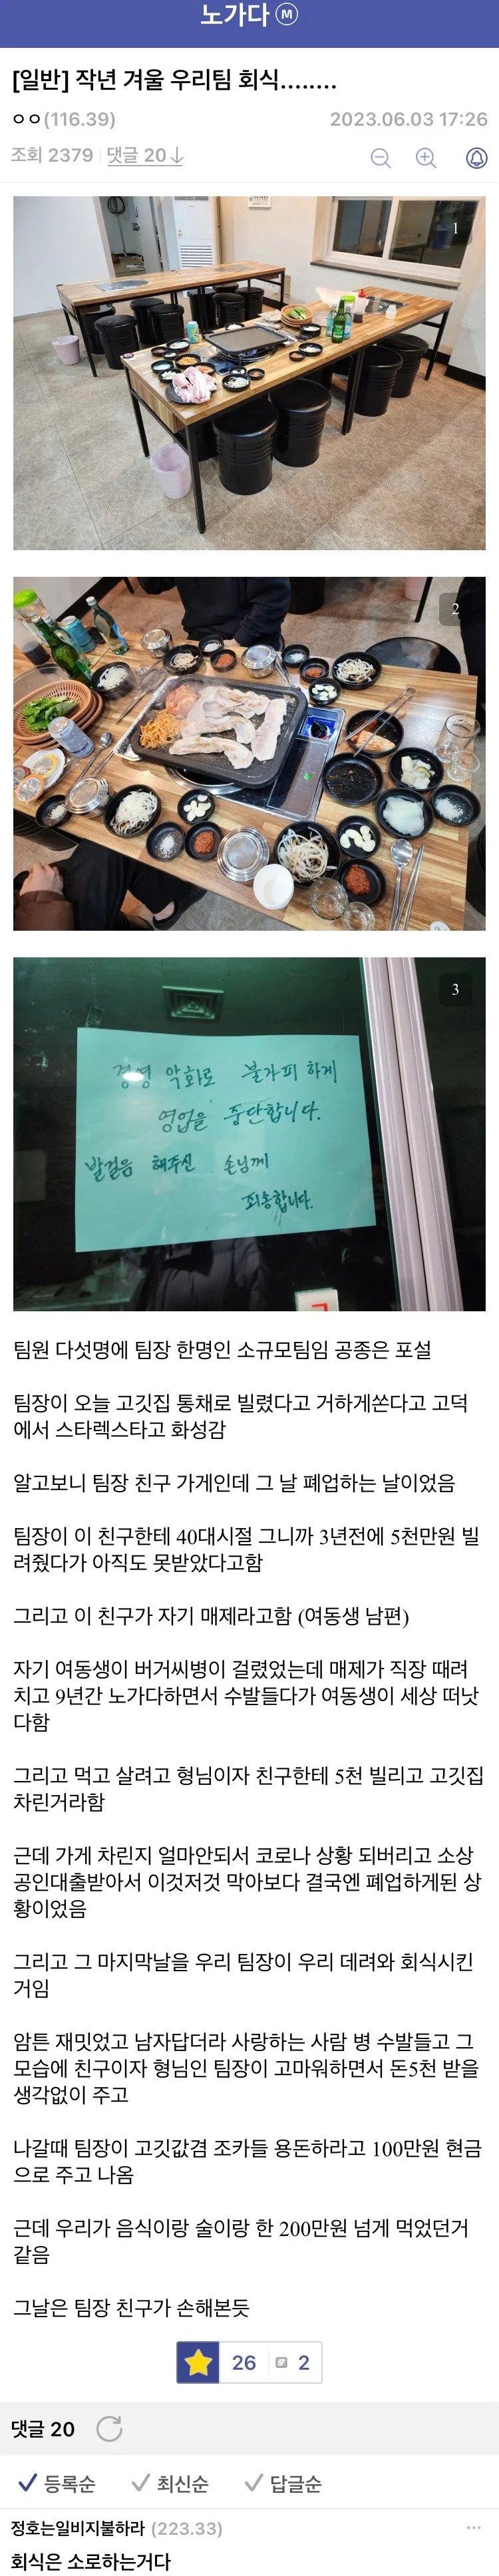 노가다 M
[일반] 작년 겨울 우리팀 회식........
ㅇㅇ(116.39)
2023.06.03 17:26
조회 2379
댓글 20↓
1
2
3
경영 악화로 불가피 하게
영업을 중단합니다.
발걸음 해주신 손님께
죄송합니다.
팀원 다섯명에 팀장 한명인 소규모팀임 공종은 포설
팀장이 오늘 고깃집 통채로 빌렸다고 거하게쏜다고 고덕
에서 스타렉스타고 화성감
알고보니 팀장 친구 가게인데 그 날 폐업하는 날이었음
팀장이 이 친구한테 40대시절 그니까 3년전에 5천만원 빌
려줬다가 아직도 못받았다고함
그리고 이 친구가 자기 매제라고함 (여동생 남편)
자기 여동생이 버거씨병이 걸렸었는데 매제가 직장 때려
치고 9년간 노가다하면서 수발들다가 여동생이 세상 떠낫
다함
그리고 먹고 살려고 형님이자 친구한테 5천 빌리고 고깃집
차린거라함
근데 가게 차린지 얼마안되서 코로나 상황 되버리고 소상
공인대출받아서 이것저것 막아보다 결국엔 폐업하게된 상
황이었음
그리고 그 마지막날을 우리 팀장이 우리 데려와 회식시킨
거임
암튼 재밋었고 남자답더라 사랑하는 사람 병 수발들고 그
모습에 친구이자 형님인 팀장이 고마워하면서 돈5천 받을
생각없이 주고
나갈때 팀장이 고깃값겸 조카들 용돈하라고 100만원 현금
으로 주고 나옴
근데 우리가 음식이랑 술이랑 한 200만원 넘게 먹었던거
같음
그날은 팀장 친구가 손해본듯
26
2
댓글 20
등록순
최신순
답글순
정호는일비지불하라 (223.33)
회식은 소로하는거다